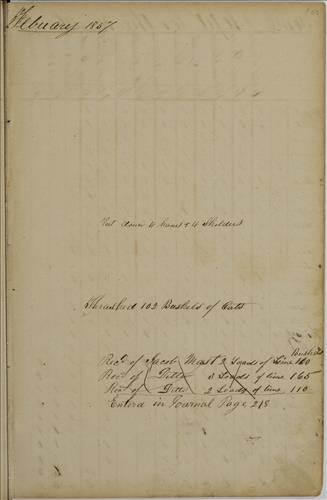 February 1857
Put down 4 Hams & 4 Shilders
Thrashed 102 Bushels of Oats
Bushels
Recd. of Jacob Mast 2 Loads of Lime 110
Recd. of Ditto 3 Loads of lime 165
Recd. of Ditto 2 Loads of lime 110
Enterd in Journal Page 218